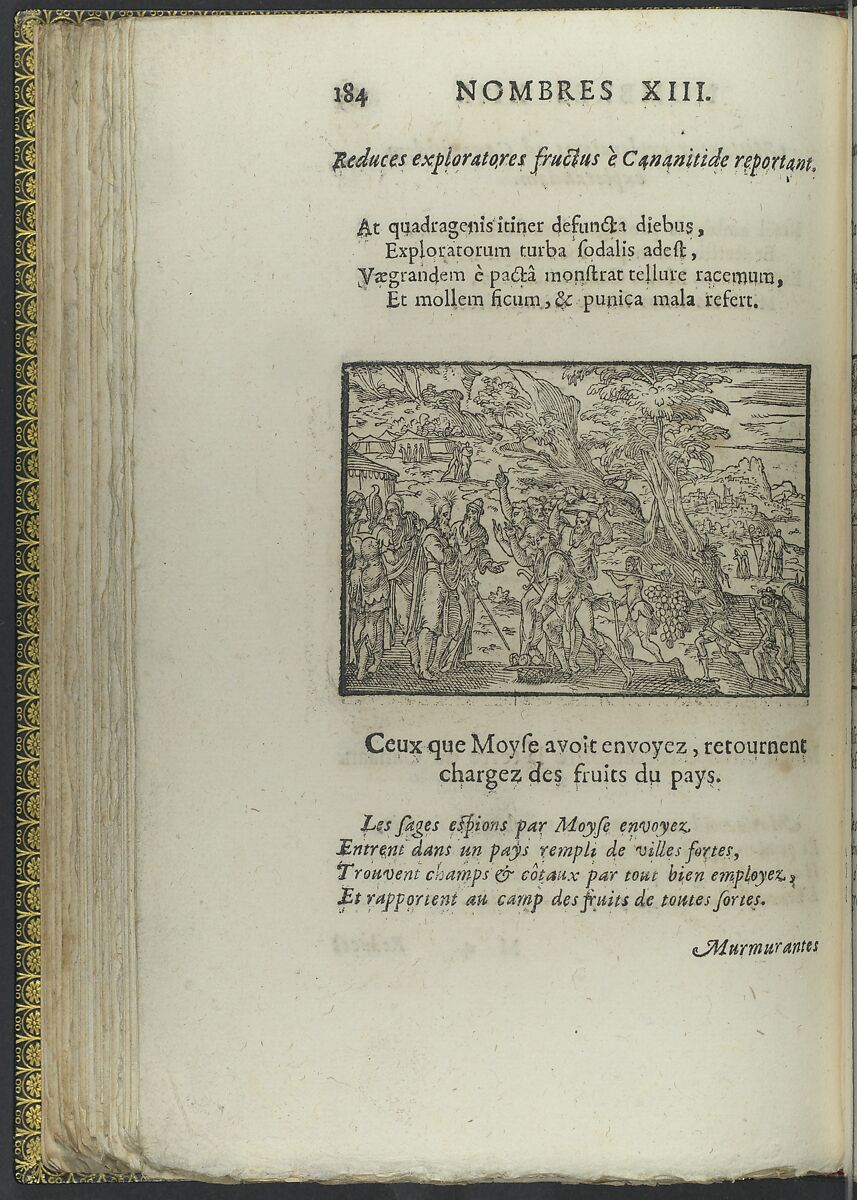 184 NOMBRES XIII.
Reduces exploratores fructus è Cananitide reportant.
At quadragenis itiner defuncta diebus,
Exploratorum turba ſodalis adeſt,
Vægrandem è pactâ monſtrat tellure racemum,
Et mollem ficum, & punica mala refert.
Ceux que Moyſe avoit envoyez, retournent
chargez des fruits du pays.
Les ſages eſpions par Moyſe envoyez
Entrent dans un pays rempli de villes fortes,
Trouvent champs & côtaux par tout bien employez,
Et rapportent au camp des fruits de toutes ſortes.
Murmurantes